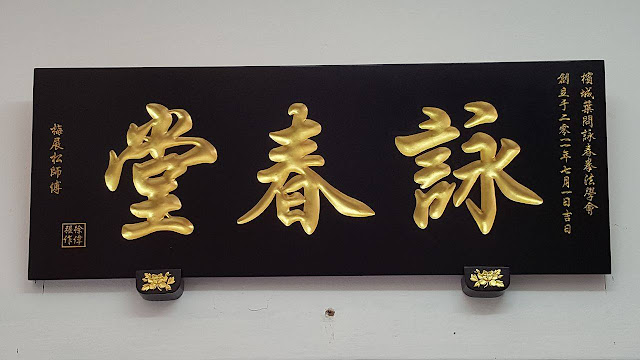 檳城葉問詠春拳法學會
創立于二零一一年七月一日吉日
詠春堂
梅展松師傅